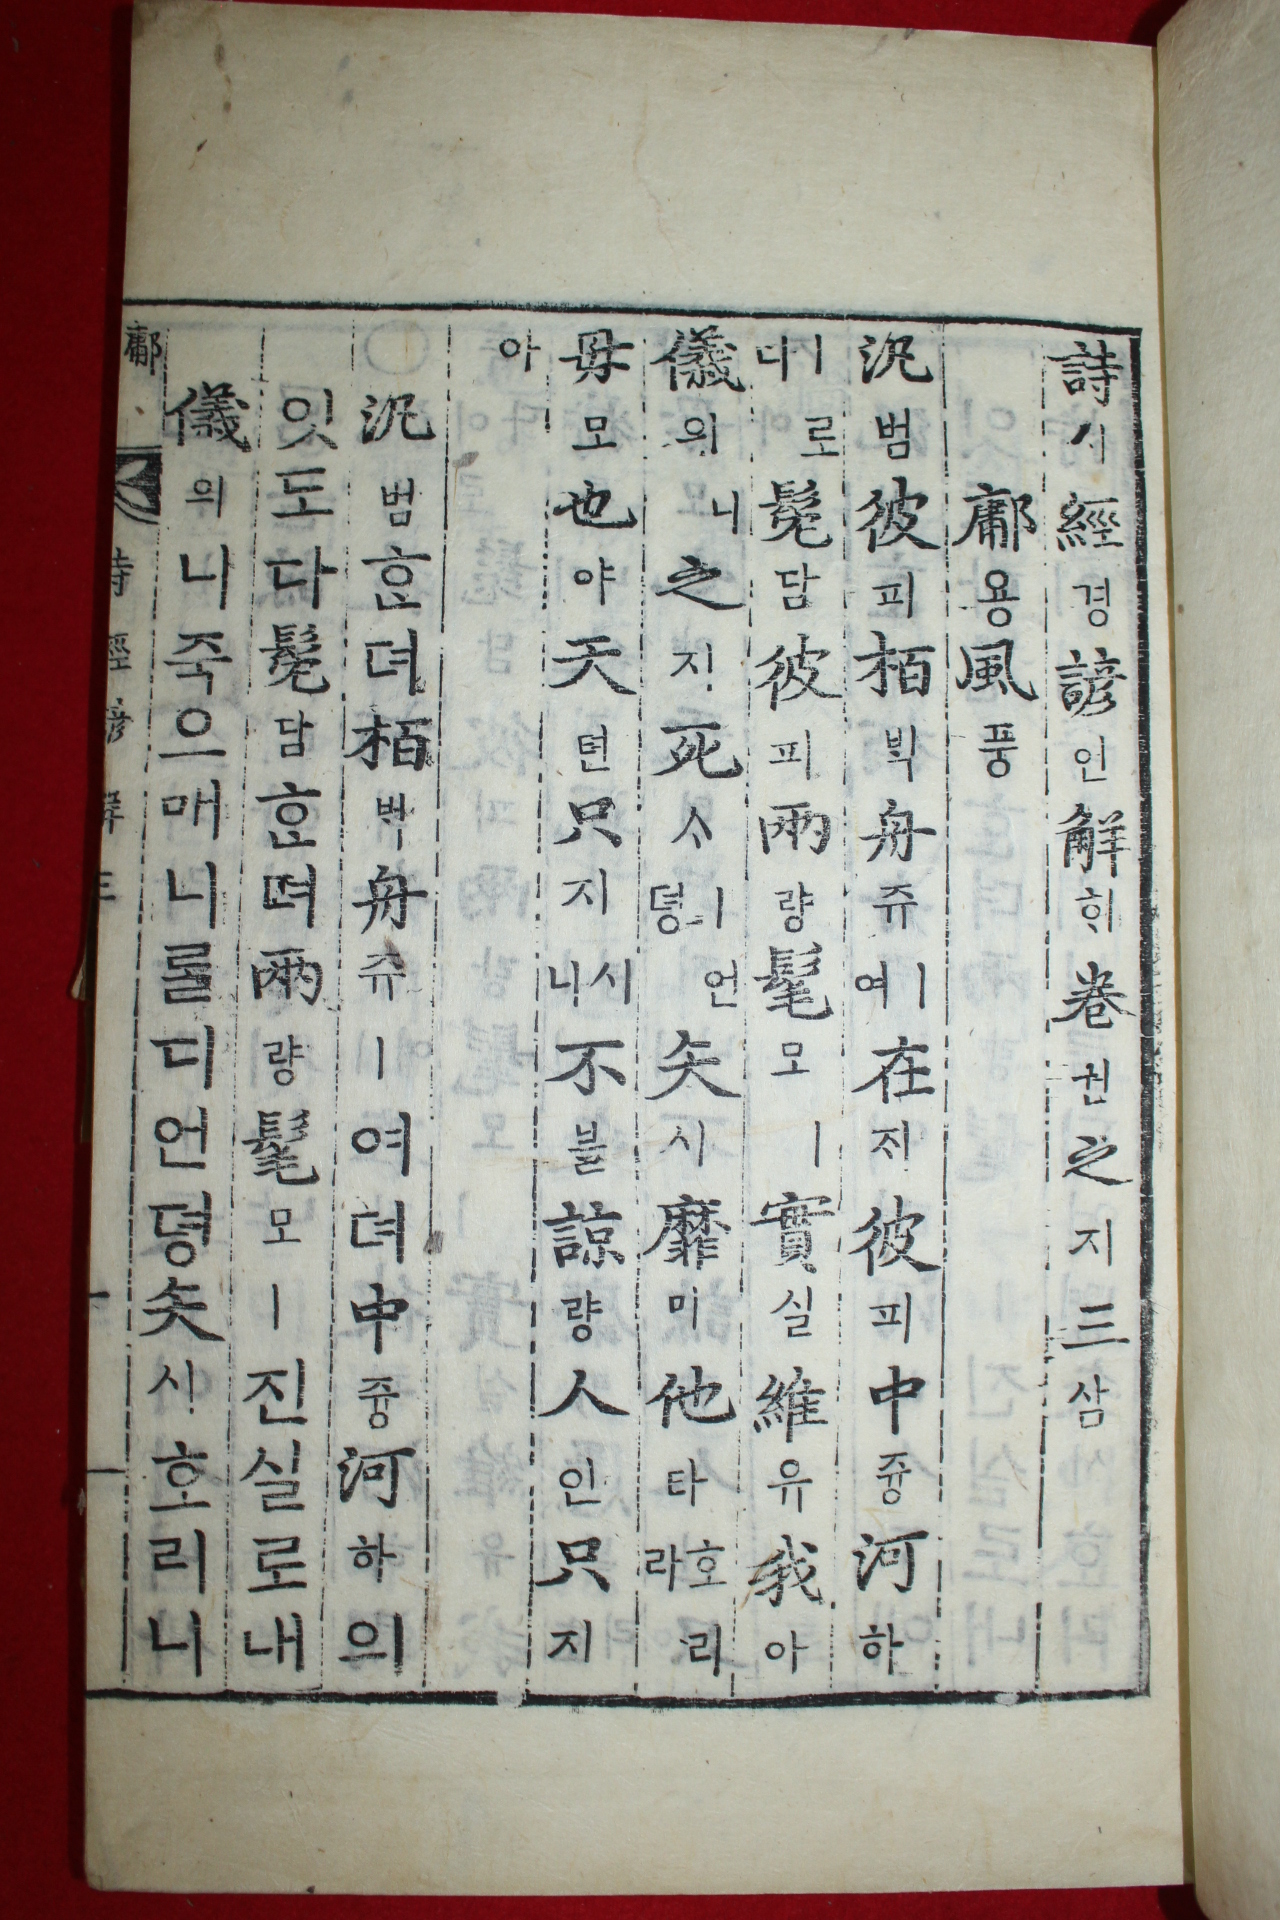 詩시經경諺언解ᄒᆡ卷권之지三삼
鄘용風풍
汎범彼피栢ᄇᆡᆨ舟쥬ㅣ여在ᄌᆡ彼피中즁河하
ㅣ로다髧담彼피兩량髦모ㅣ實실維유我아
儀의니之지死ᄉᆞㅣ언뎡矢시靡미他타호리라
母모也야天텬只지시니不불諒량人인只지
아
○汎범ᄒᆞᆫ뎌栢ᄇᆡᆨ舟쥬ㅣ여뎌中즁河하의
잇도다髧담ᄒᆞᆫ뎌兩량髦모ㅣ진실로내
儀의니죽으매니ᄅᆞᆯ디언뎡矢시호리니
鄘 詩經諺解 三